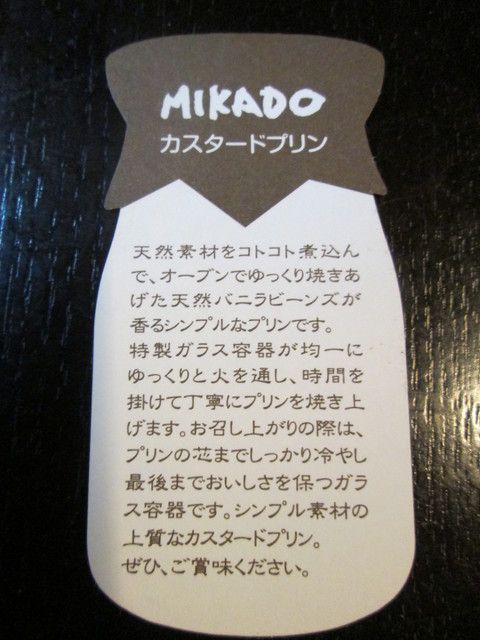 MIKADO
カスタードプリン
天然素材をコトコト煮込ん
で、オーブンでゆっくり焼きあ
げた天然バニラビーンズが
香るシンプルなプリンです。
特製ガラス容器が均一に
ゆっくりと火を通し、時間を
掛けて丁寧にプリンを焼き上
げます。お召し上がりの際は、
プリンの芯までしっかり冷やし
最後までおいしさを保つガラ
ス容器です。シンプル素材の
上質なカスタードプリン。
ぜひ、ご賞味ください。